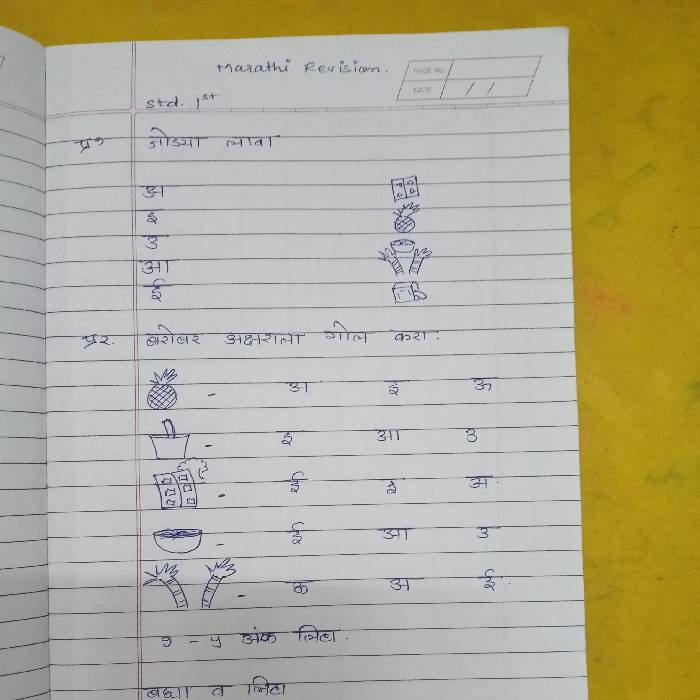 Marathi Revision.
PAGE No.
DATE / /
Std. 1st
प्र१ जोड्या लावा
अ
इ
उ
आ
ई
प्र२. बरोबर अक्षराला गोल करा.
- अ इ ऊ
- इ आ उ
- ई इ अ
- ई आ उ
- ऊ अ ई
१ - ५ अंक लिहा.
बघा व लिहा